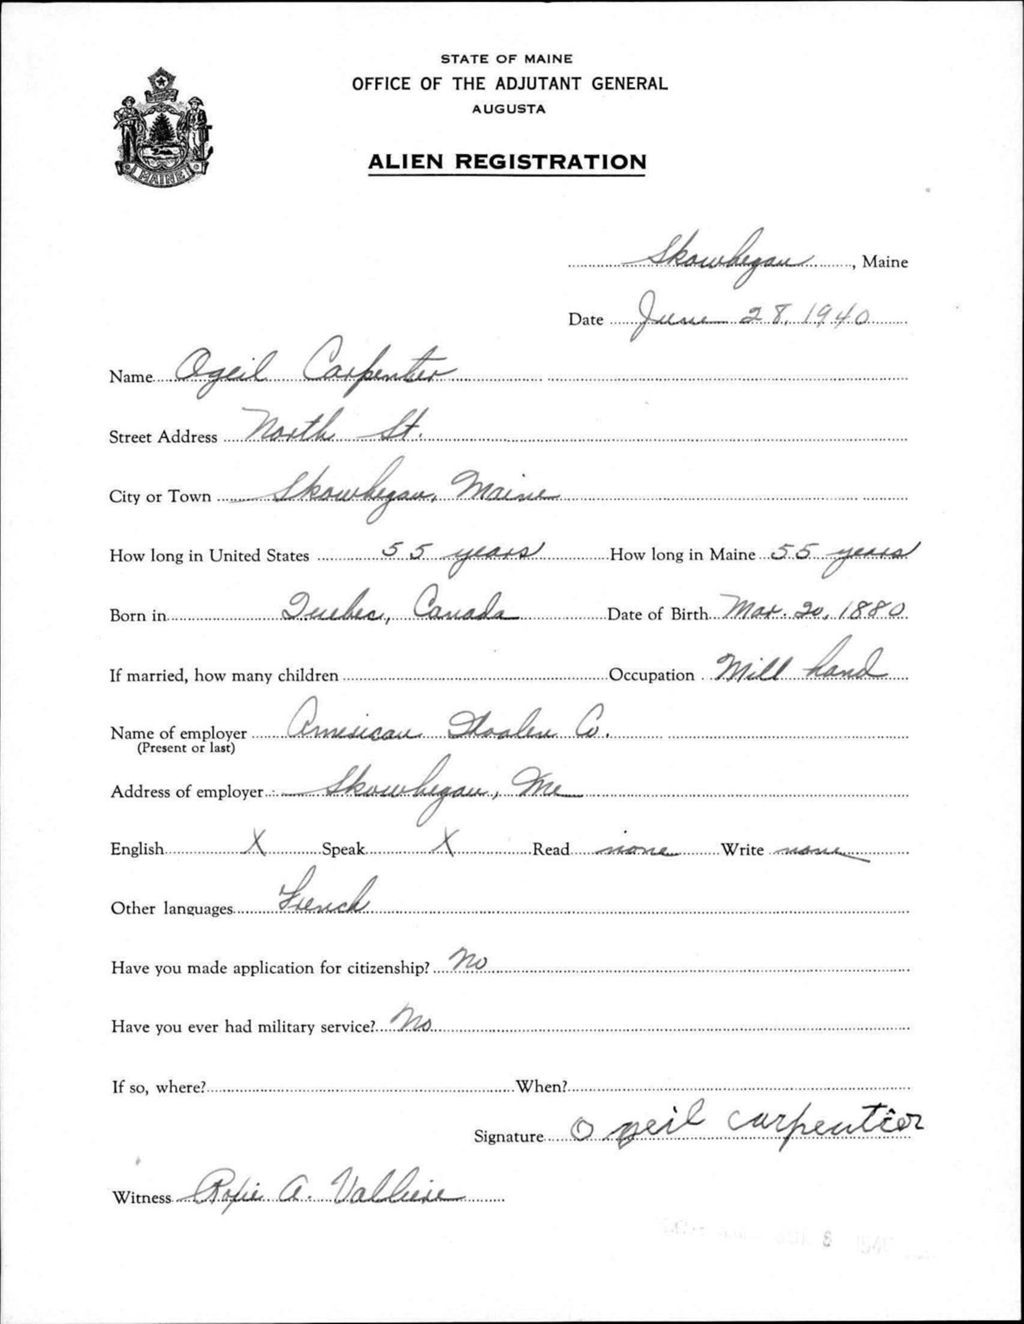 STATE OF MAINE
OFFICE OF THE ADJUTANT GENERAL
AUGUSTA
ALIEN REGISTRATION
MAINE
Skowhegan, Maine
Date June 28, 1940
Name Ogeil Carpenter
Street Address North St.
City or Town Skowhegan, Maine
How long in United States 55 years How long in Maine 55 years
Born in Quebec, Canada Date of Birth Mar. 20, 1880
If married, how many children Occupation Mill hand
Name of employer American Woolen Co.
(Present or last)
Address of employer Skowhegan, Me
English X Speak X Read none Write none
Other languages French
Have you made application for citizenship? No
Have you ever had military service? No
If so, where? When?
Signature Ogeil carpentier
Witness A. Valliere